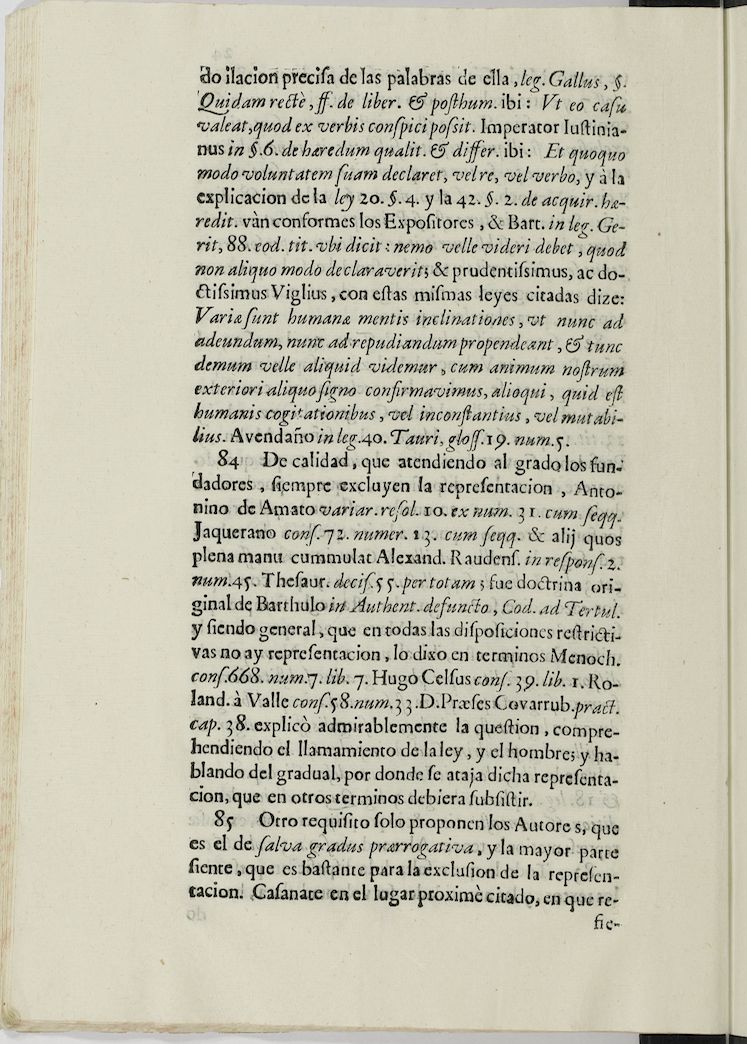 do ilacion precisa de las palabras de ella, leg. Gallus, §.
Quidam rectè, ff. de liber. & posthum. ibi: Vt eo casu
valeat, quod ex verbis conspici possit. Imperator Iustinia-
nus in §. 6. de hæredum qualit. & differ. ibi: Et quoquo
modo voluntatem suam declaret, vel re, vel verbo, y à la
explicacion de la ley 20. §. 4. y la 42. §. 2. de acquir. hæ-
redit. vàn conformes los Expositores, & Bart. in leg. Ge-
rit, 88. eod. tit. vbi dicit: nemo velle videri debet, quod
non aliquo modo declaraverit; & prudentissimus, ac do-
ctissimus Viglius, con estas mismas leyes citadas dize:
Variæ sunt humanæ mentis inclinationes, vt nunc ad
adeundum, nunc ad repudiandum propendeant, & tunc
demum velle aliquid videmur, cum animum nostrum
exteriori aliquo signo confirmavimus, alioqui, quid est
humanis cogitationibus, vel inconstantius, vel mutabi-
lius. Avendaño in leg. 40. Tauri, gloss. 19. num. 5.
84 De calidad, que atendiendo al grado los fun-
dadores, siempre excluyen la representacion, Anto-
nino de Amato variar. resol. 10. ex num. 31. cum seqq.
Jaquerano cons. 72. numer. 13. cum seqq. & alij quos
plena manu cummulat Alexand. Raudens. in respons. 2.
num. 45. Thesaur. decis. 55. per totam; fue doctrina ori-
ginal de Barthulo in Authent. defuncto, Cod. ad Tertul.
y siendo general, que en todas las disposiciones restricti-
vas no ay representacion, lo dixo en terminos Menoch.
cons. 668. num. 7. lib. 7. Hugo Celsus cons. 39. lib. 1. Ro-
land. à Valle cons. 58. num. 33. D. Præses Covarrub. pract.
cap. 38. explicò admirablemente la question, compre-
hendiendo el llamamiento de la ley, y el hombre; y ha-
blando del gradual, por donde se ataja dicha representa-
cion, que en otros terminos debiera subsistir.
85 Otro requisito solo proponen los Autores, que
es el de salva gradus prærrogativa, y la mayor parte
siente, que es bastante para la exclusion de la represen-
tacion. Casanate en el lugar proximè citado, en que re-
fie-